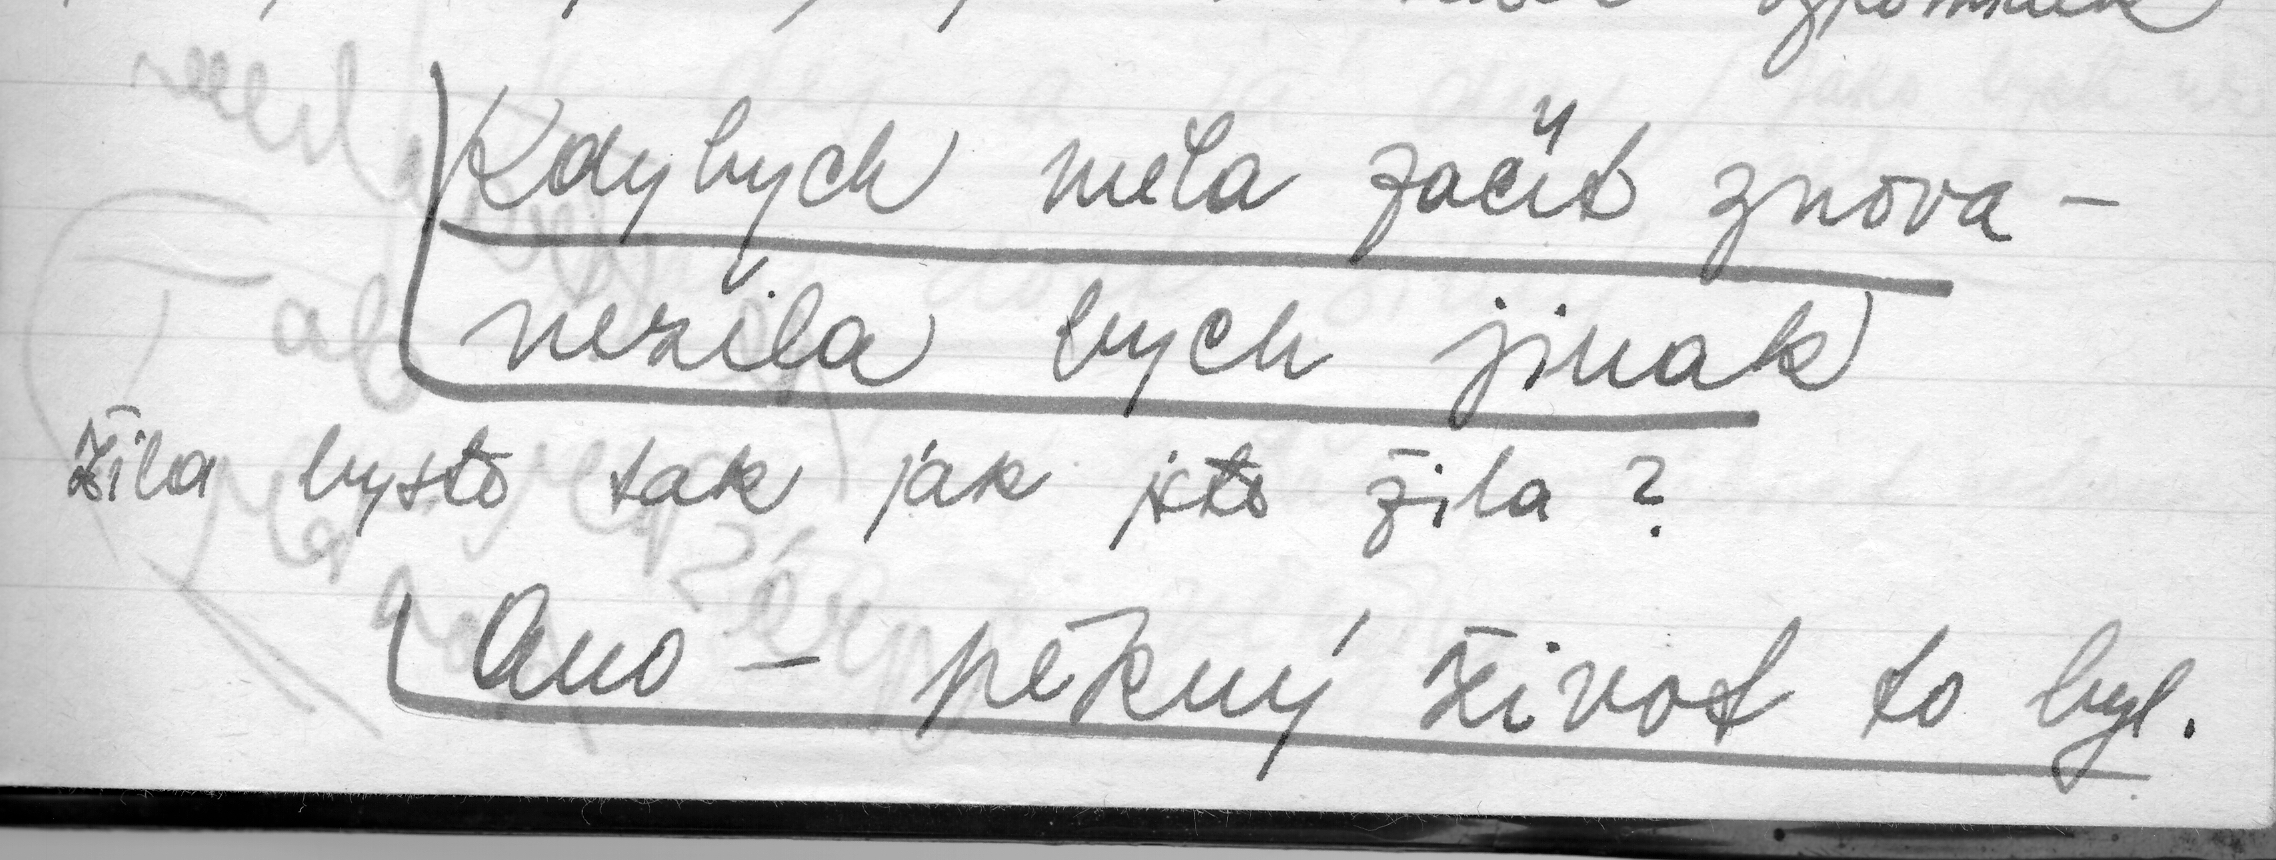 vzpomínek
Kdybych měla začít znova –
nežila bych jinak
žila byste tak jak jste žila?
Ano – pěkný život to byl.